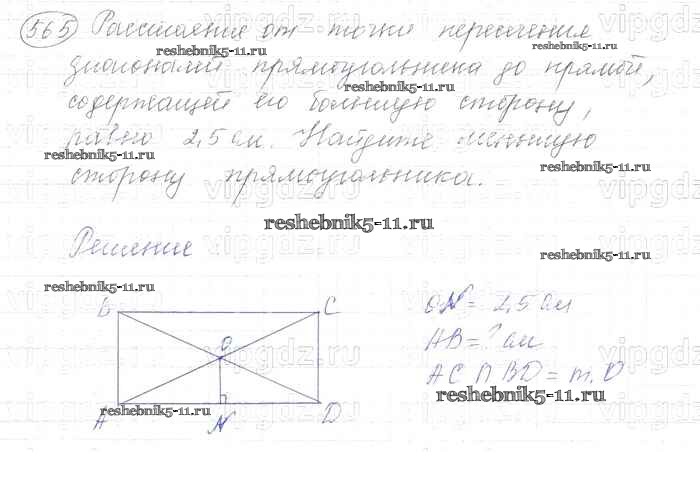 565 Расстояние от точки пересечения
диагоналей прямоугольника до прямой,
содержащей его большую сторону,
равно 2,5 см. Найдите меньшую
сторону прямоугольника.
Решение
B C
O
A N D
ON = 2,5 см
AB = ? см
AC ∩ BD = т. O
reshebnik5-11.ru
reshebnik5-11.ru
reshebnik5-11.ru
reshebnik5-11.ru
reshebnik5-11.ru
reshebnik5-11.ru
reshebnik5-11.ru
reshebnik5-11.ru
reshebnik5-11.ru
reshebnik5-11.ru
vipgdz.ru